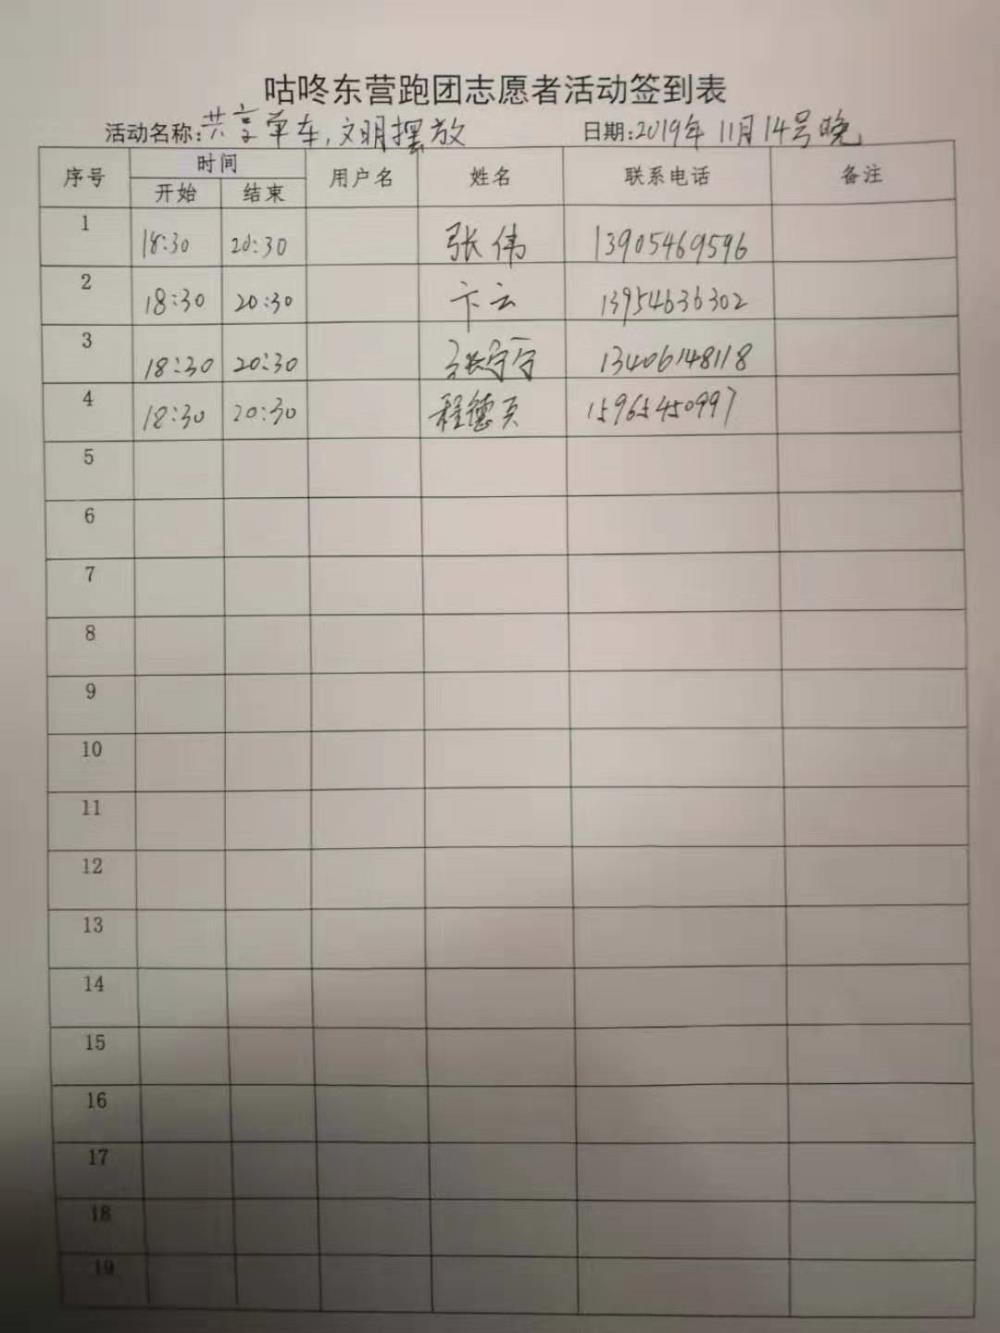 咕咚东营跑团志愿者活动签到表
活动名称:共享单车,文明摆放 日期:2019年11月14号晚
序号 时间 用户名 姓名 联系电话 备注
开始 结束
1 18:30 20:30 张伟 13905469596
2 18:30 20:30 卞云 13954636302
3 18:30 20:30 张宁宁 13406148118
4 18:30 20:30 程德 15965450997
5
6
7
8
9
10
11
12
13
14
15
16
17
18
19